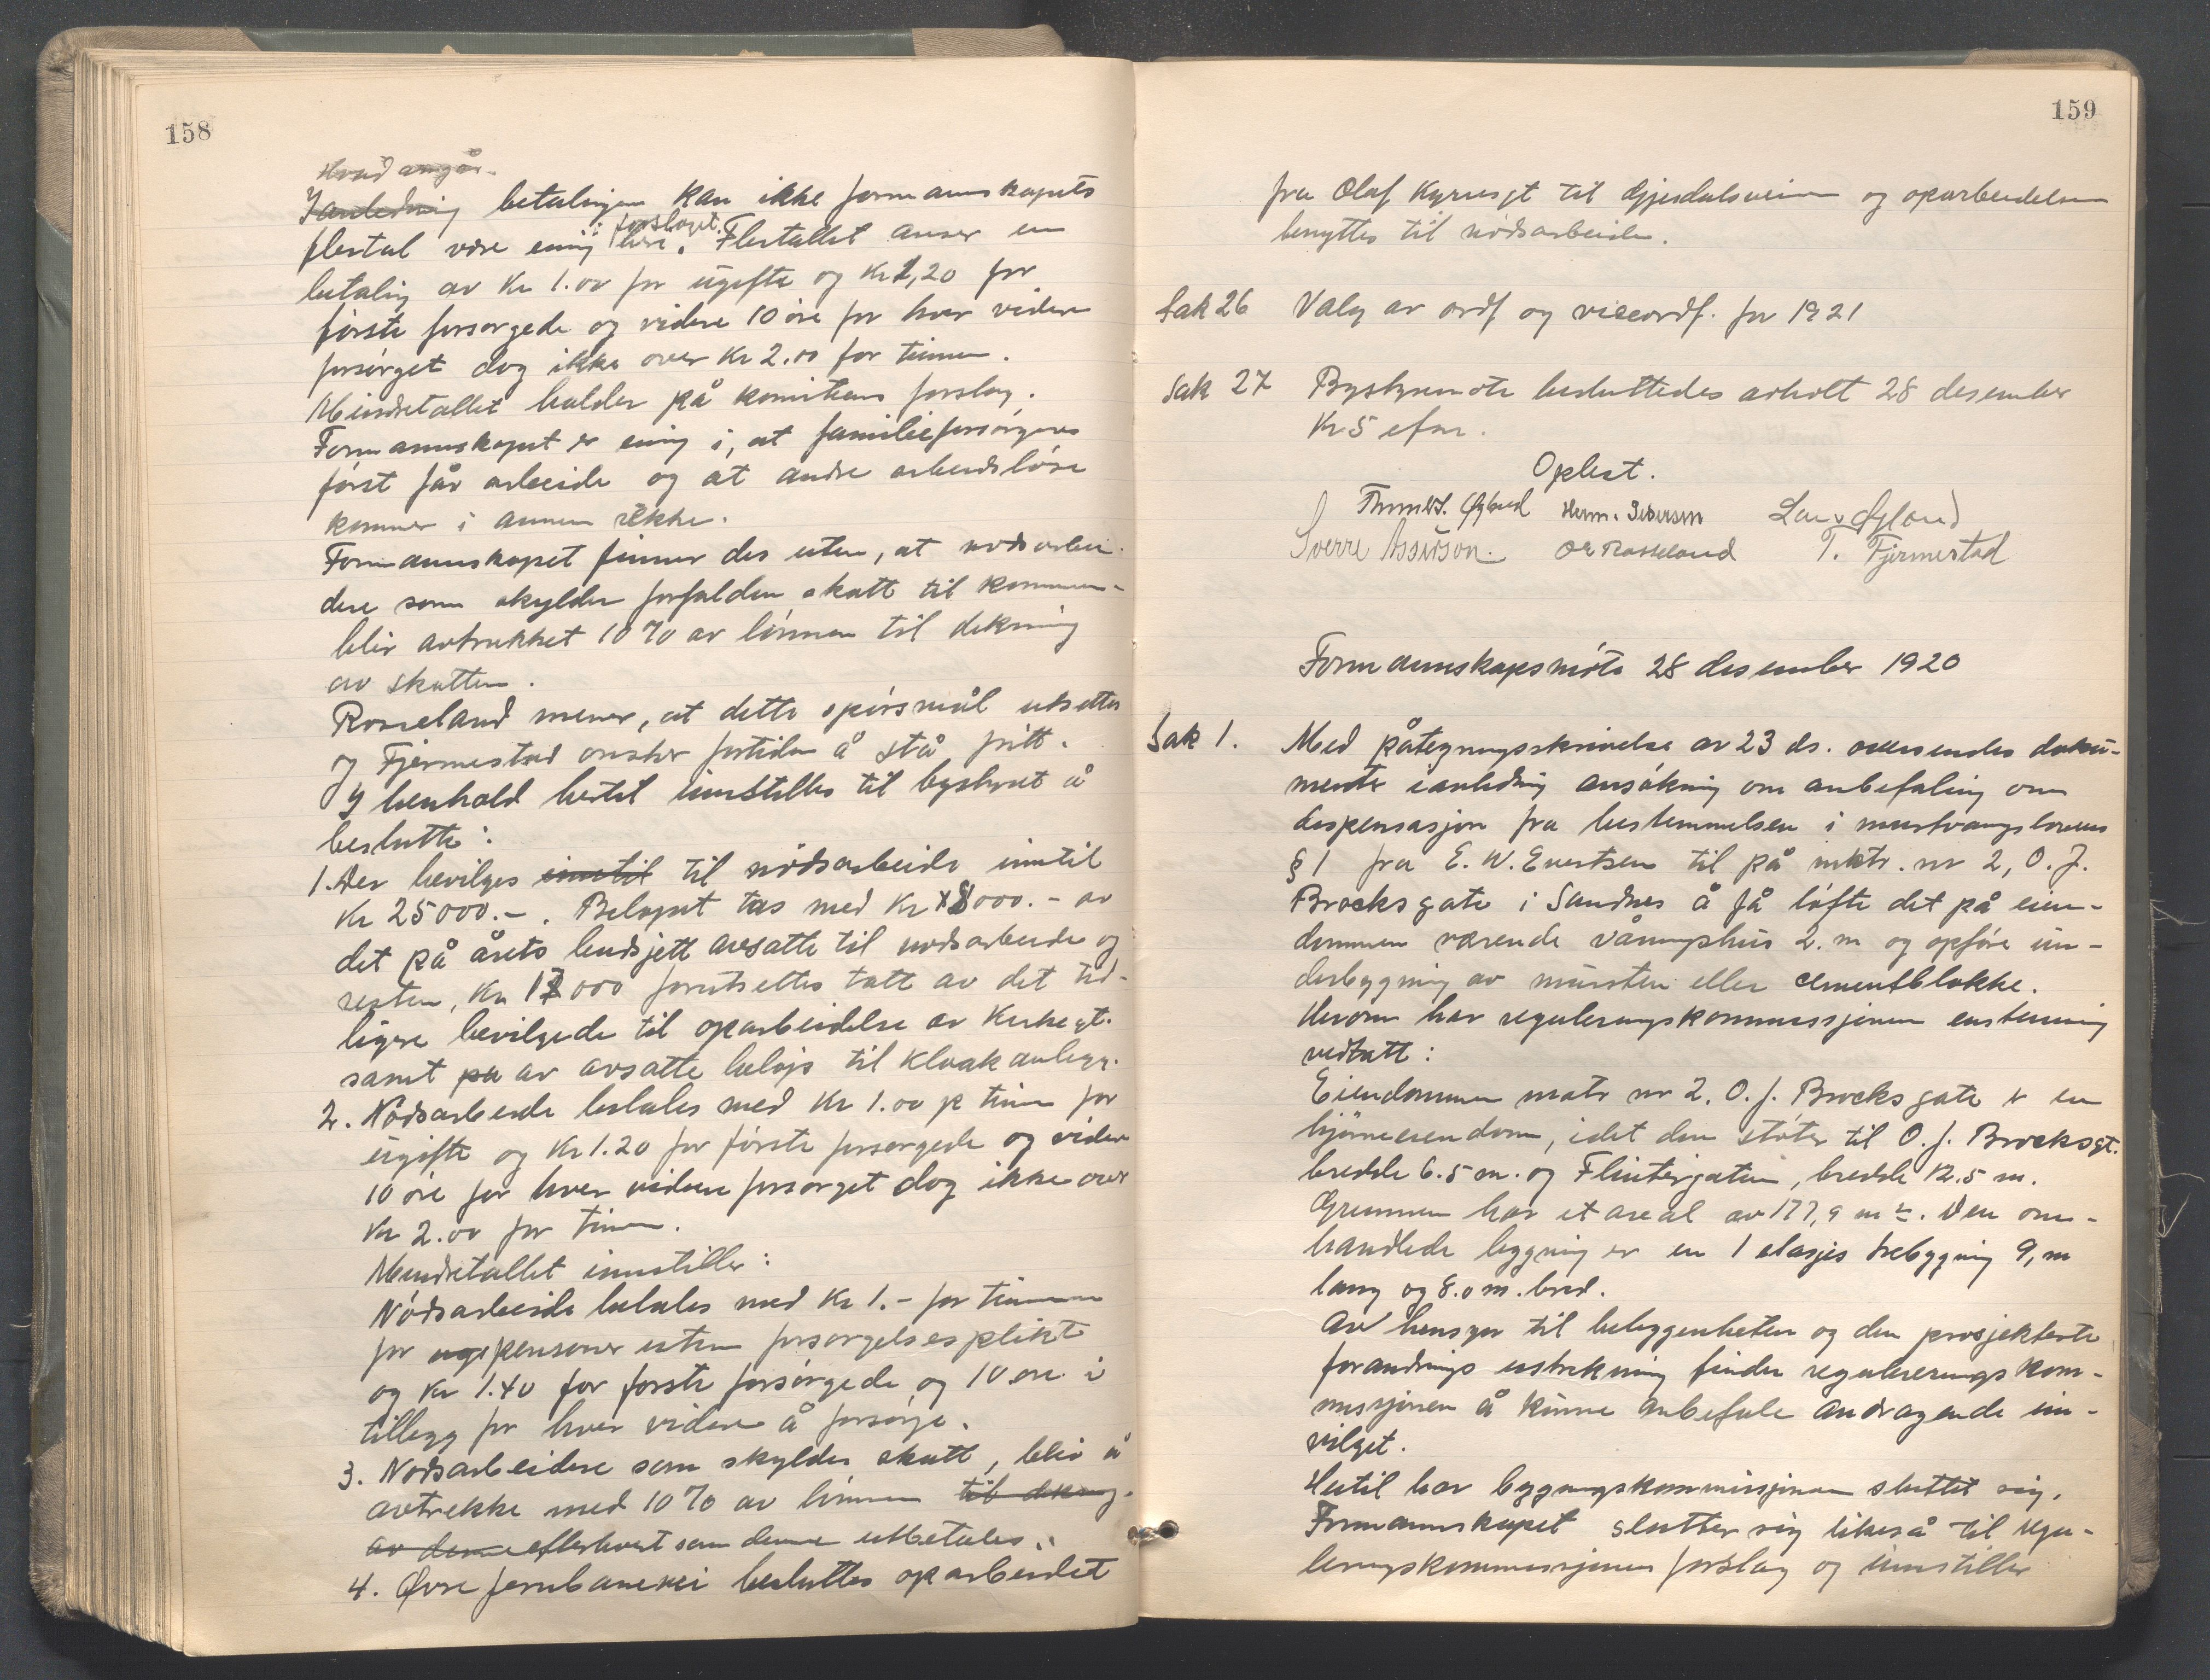 158
Hvad angår
I anledning betalingen kan ikke formannskapets
flertal være enig i forslaget. Flertallet anser en
betaling av Kr 1.00 for ugifte og Kr 1,20 for
første forsørgede og videre 10 øre for hver videre
forsørget dog ikke over Kr 2.00 for timen.
Mindretallet holder på komiteens forslag.
Formannskapet er enig i, at familieforsørgere
først får arbeide og at andre arbeidsløse
kommer i annen rekke.
Formannskapet finner des uten, at nødsarbei-
dere som skylder forfalden skatt til kommunen-
blir avtrukket 10 % av lønnen til dekning
av skatten.
Rosseland mener, at dette spørsmål utsettes
og Fjermestad ønsker fortiden å stå fritt.
I henhold hertil innstilles til bystyret å
beslutte:
1. Der bevilges inntil til nødsarbeide inntil
Kr 25000.-. Beløpet tas med Kr 8000.- av
det på årets budsjett avsatte til nødsarbeide og
resten, Kr 17000 forutsettes tatt av det tid-
ligere bevilgede til oparbeidelse av Kirkegt.
samt på av avsatte beløp til kloakanlegg.
2. Nødsarbeide betales med Kr 1.00 p time for
ugifte og Kr 1.20 for første forsørgede og videre
10 øre for hver videre forsørget dog ikke over
Kr 2.00 for timen.
Mindretallet innstiller:
Nødsarbeide betales med Kr 1.- for timen
for personer uten forsørgelsesplikt
og Kr 1.40 for første forsørgede og 10 øre i
tillegg for hver videre å forsørge.
3. Nødsarbeidere som skylder skatt, blir å
avtrekke med 10 % av lønnen til dekning
av denne efterhvert som denne utbetales.
4. Øvre jernbanevei besluttes oparbeidet
159
fra Olaf Kyrresgt til Gjesdalsveien og oparbeidelsen
benyttes til nødsarbeide.
Sak 26 Valg av ordf og viceordf. for 1921
Sak 27 Bystyremøte besluttedes avholt 28 desember
Kl 5 efm.
Oplest.
Øgland Herm. Pedersen Lars Øgland
Sverre Asserson. O Rosseland T. Fjermestad
Formannskapsmøte 28 desember 1920
Sak 1. Med påtegningsskrivelse av 23 ds. oversendes doku-
menter i anledning ansøkning om anbefaling om
dispensasjon fra bestemmelsen i murtvangslovens
§ 1 fra E. W. Evertsen til på matr. nr 2, O. J.
Brocksgate i Sandnes å få løfte det på eien-
dommen værende våningshus 2. m og opføre un-
derbygning av mursten eller cementblokke.
Herom har reguleringskommissjonen enstemmig
vedtatt:
Eiendommen matr nr 2. O. J. Brocks gate er en
hjørneeiendom, idet den støter til O. J. Brocksgt.
bredde 6.5 m. og Flintergaten, bredde 12.5 m.
Grunnen har et areal av 177,9 m². Den om-
handlede bygning er en 1 etasjes trebygning 9, m
lang og 8.0 m. bred.
Av hensyn til beliggenheten og den prosjekterte
forandrings utstrekning finder regulerings kom-
missjonen å kunne anbefale andragende inn-
vilget.
Hertil har bygningskommissjonen sluttet sig.
Formannskapet slutter sig likeså til regu-
leringskommissjonens forslag og innstiller